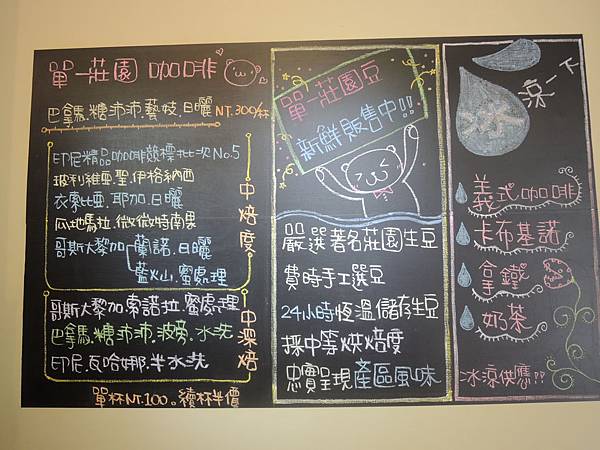 單一莊園 咖啡
巴拿馬.糖沛沛.藝妓.日曬 NT.300/杯
印尼精品咖啡競標批次No.5
玻利維亞.聖.伊格納西
衣索比亞.耶加.日曬
瓜地馬拉.微微特南果
哥斯大黎加 蘭諾.日曬
藍火山.蜜處理
中焙度
哥斯大黎加.索諾拉.蜜處理
巴拿馬.糖沛沛.波旁.水洗
印尼.瓦哈娜.半水洗
中深焙
單杯NT.100。續杯半價
單一莊園豆
新鮮販售中!!
嚴選著名莊園生豆
費時手工選豆
24小時恆溫儲存生豆
採中等烘焙度
忠實呈現產區風味
冰涼一下
義式咖啡
卡布基諾
拿鐵
奶茶
冰涼供應!?